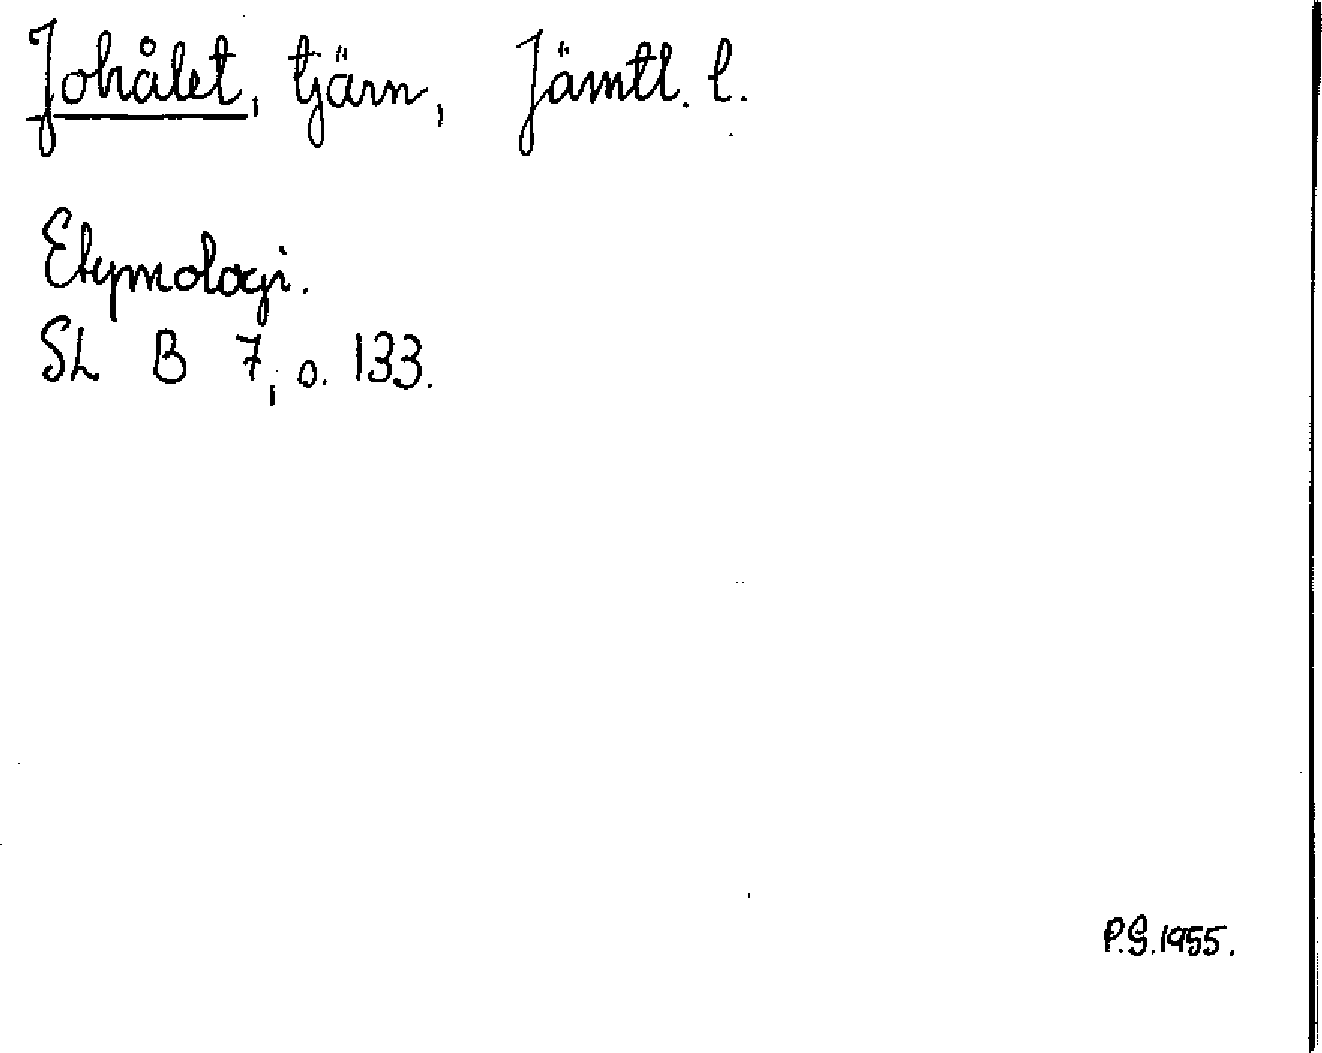 Johålet, tjärn, Jämtl. l.
Etymologi.
SL B 7, s. 133.
P.G.1955.